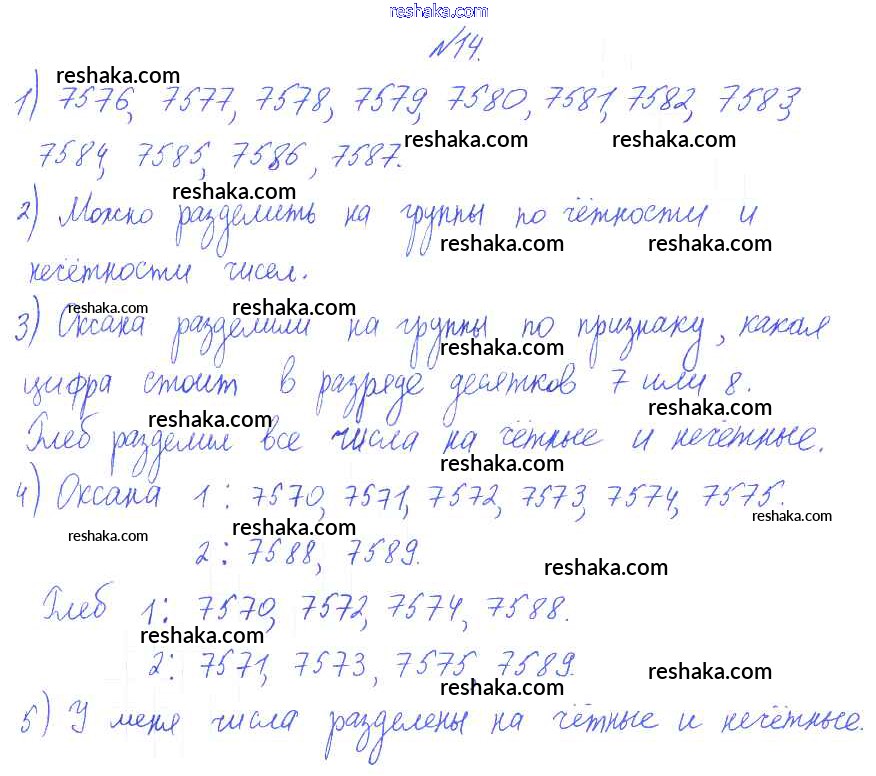 reshaka.com
№14.
reshaka.com
1) 7576, 7577, 7578, 7579, 7580, 7581, 7582, 7583,
reshaka.com reshaka.com
7584, 7585, 7586, 7587.
reshaka.com
2) Можно разделить на группы по чётности и
reshaka.com reshaka.com
несётности чисел.
reshaka.com reshaka.com
3) Оксана разделили на группы по признаку, какая
reshaka.com
цифра стоит в разряде десятков 7 или 8.
reshaka.com reshaka.com
Глеб разделил все числа на чётные и нечётные.
reshaka.com
4) Оксана 1: 7570, 7571, 7572, 7573, 7574, 7575.
reshaka.com reshaka.com reshaka.com
2: 7588, 7589.
reshaka.com
Глеб 1: 7570, 7572, 7574, 7588.
reshaka.com
2: 7571, 7573, 7575, 7589.
reshaka.com reshaka.com
5) У меня числа разделены на чётные и нечётные.